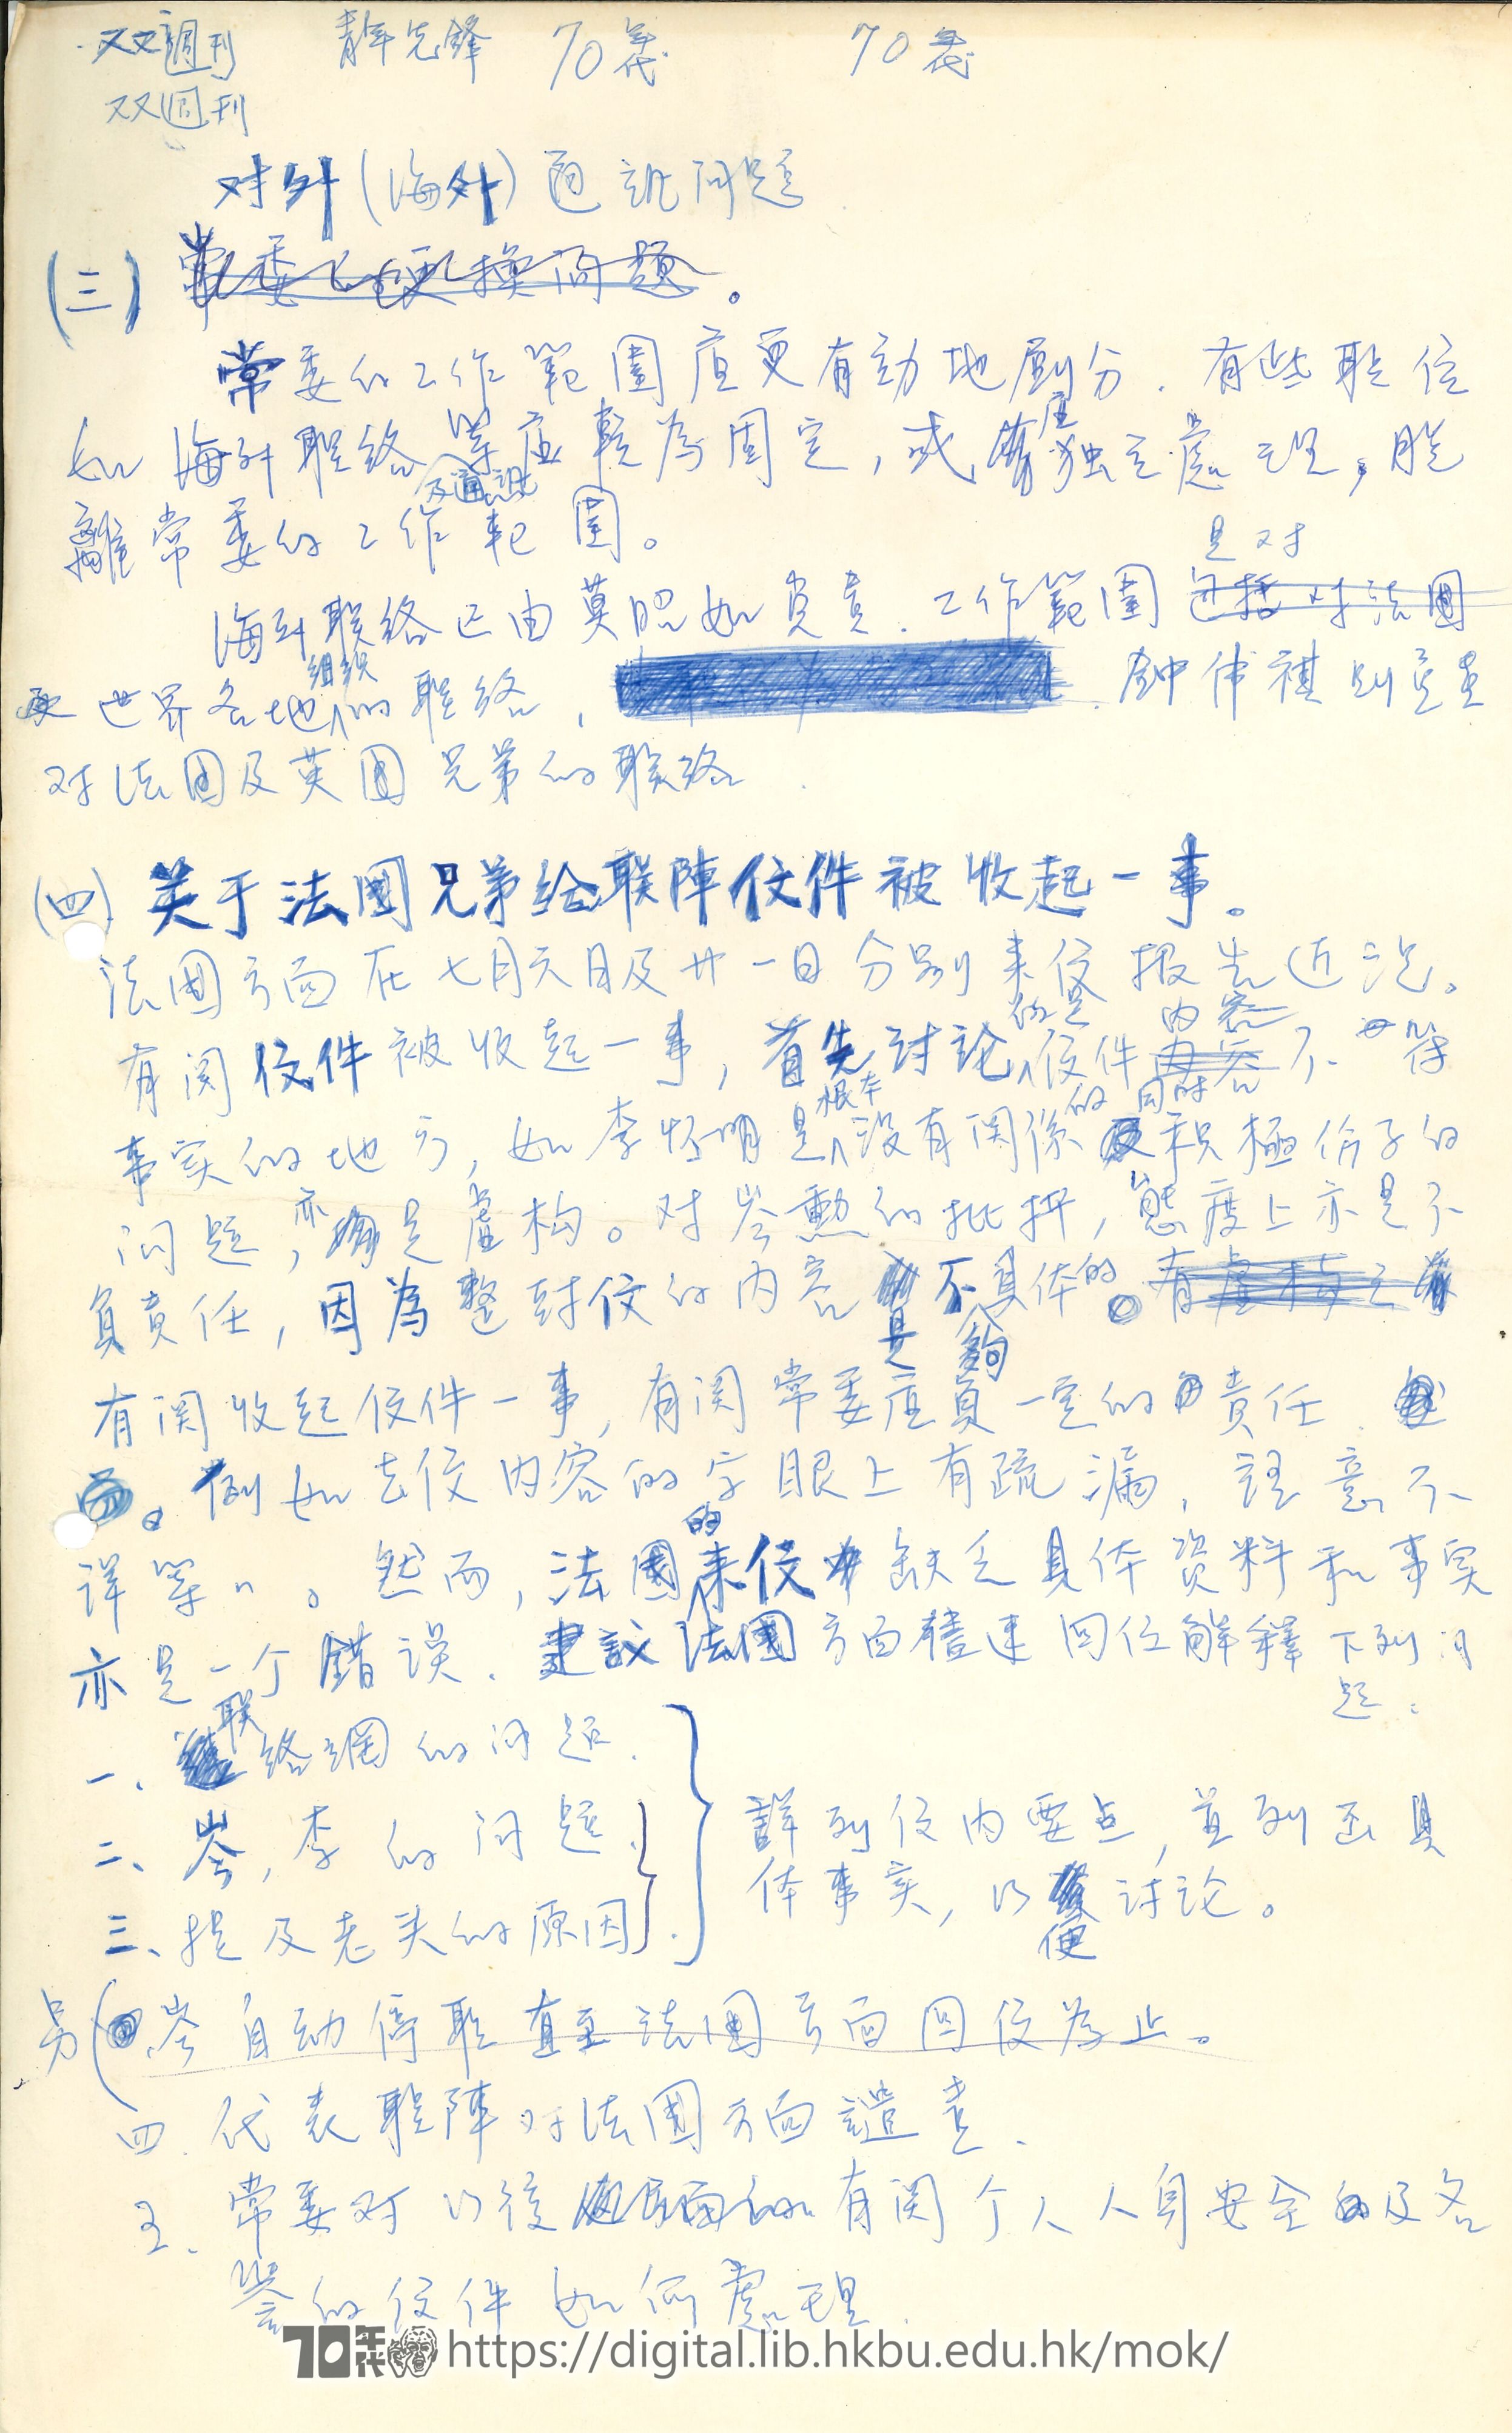 双週刊 青年先鋒 70年代 70年代
双週刊
对外(海外)通訊问题
(三) 常委的更換问题。
常委的工作範圍應更有効地劃分. 有些职位
如海外联络及通訊等應較為固定, 或應独立處理, 脫
離常委的工作範圍。
海外联络已由莫昭如負責. 工作範圍是对包括对法國
世界各地组织的联络, 鈡伟祺则負責
对法國及英國兄弟的联络.
(四) 关于法國兄弟给联陣信件被收起一事。
法國方面在七月六日及廿一日分别来信報告近況。
有関信件被收起一事, 首先討论的是信件内容不符
事实的地方, 如李怀明是根本没有関係的同时积極份子的
问题, 亦是虛构。对岑勳的批抨, 態度上亦是不
負責任, 因為整封信的内容是不夠具体的。
有関收起信件一事, 有関常委應負一定的責任.
。例如去信内容的字眼上有疏漏, 語意不
詳等。然而, 法國的来信缺乏具体資料和事实
亦是一个錯误. 建議法國方面儘速回信解釋下列问
题:
一、联络網的问题.
二、岑, 李的问题.
三、提及老头的原因.
詳列信内要点, 並列出具
体事实, 以便討论。
另(岑自动停职直至法國方面回信為止。
四. 代表联陣对法國方面譴責.
五. 常委对以後有関个人人身安全及名
譽的信件如何處理.
70年代 https://digital.lib.hkbu.edu.hk/mok/